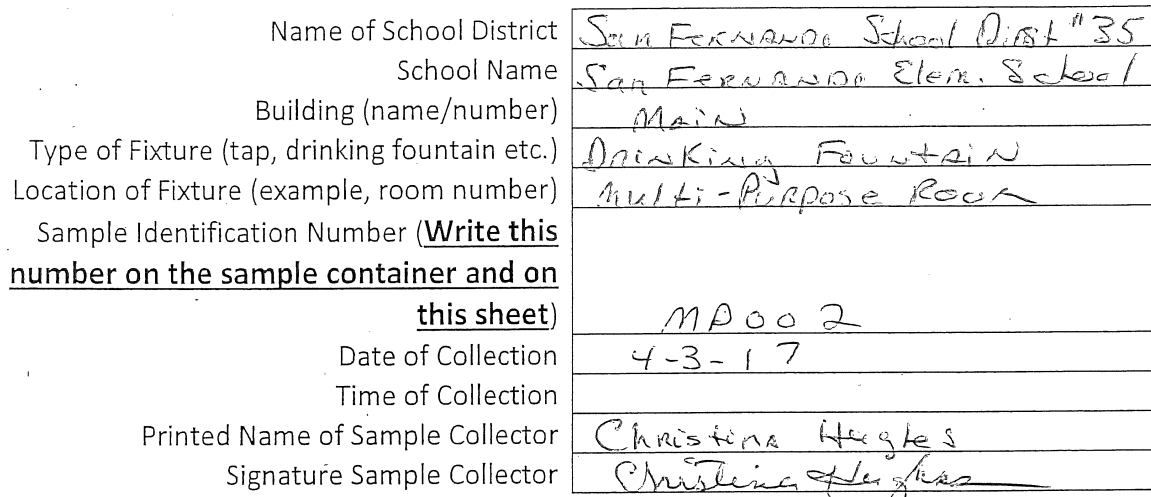 Name of School District San Fernando School Dist #35
School Name San Fernando Elem. School
Building (name/number) Main
Type of Fixture (tap, drinking fountain etc.) Drinking Fountain
Location of Fixture (example, room number) Multi-Purpose Room
Sample Identification Number (Write this
number on the sample container and on
this sheet) MP002
Date of Collection 4-3-17
Time of Collection
Printed Name of Sample Collector Christina Hughes
Signature Sample Collector Christina Hughes